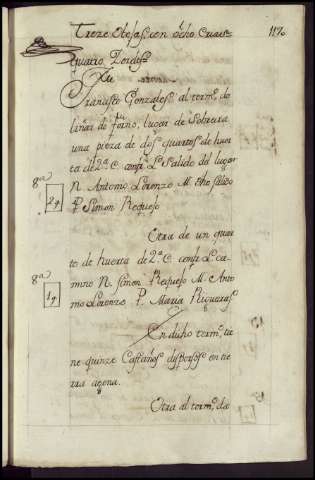 Treze Obejas, con ocho Crias
quatro Zerdos
1176
Francisco Gonzales al termo de
liñar de forno, lugar de Sobreira
una pieza de dos quartos de huer
ta de 2ª C. confr. L. Salido del lugar
N. Antonio Lorenzo M. dho salido
P. Simon Requejo
8ª
2q.
Otra de un quar
to de huerta de 2ª C. confr. L. ca
mino N. Simon Requejo M. Anto
nio Lorenzo P. Maria
8ª
1q.
En dicho termo tie
ne quinze Castaños dispersos en tie
rra agena.
Otra al termo da